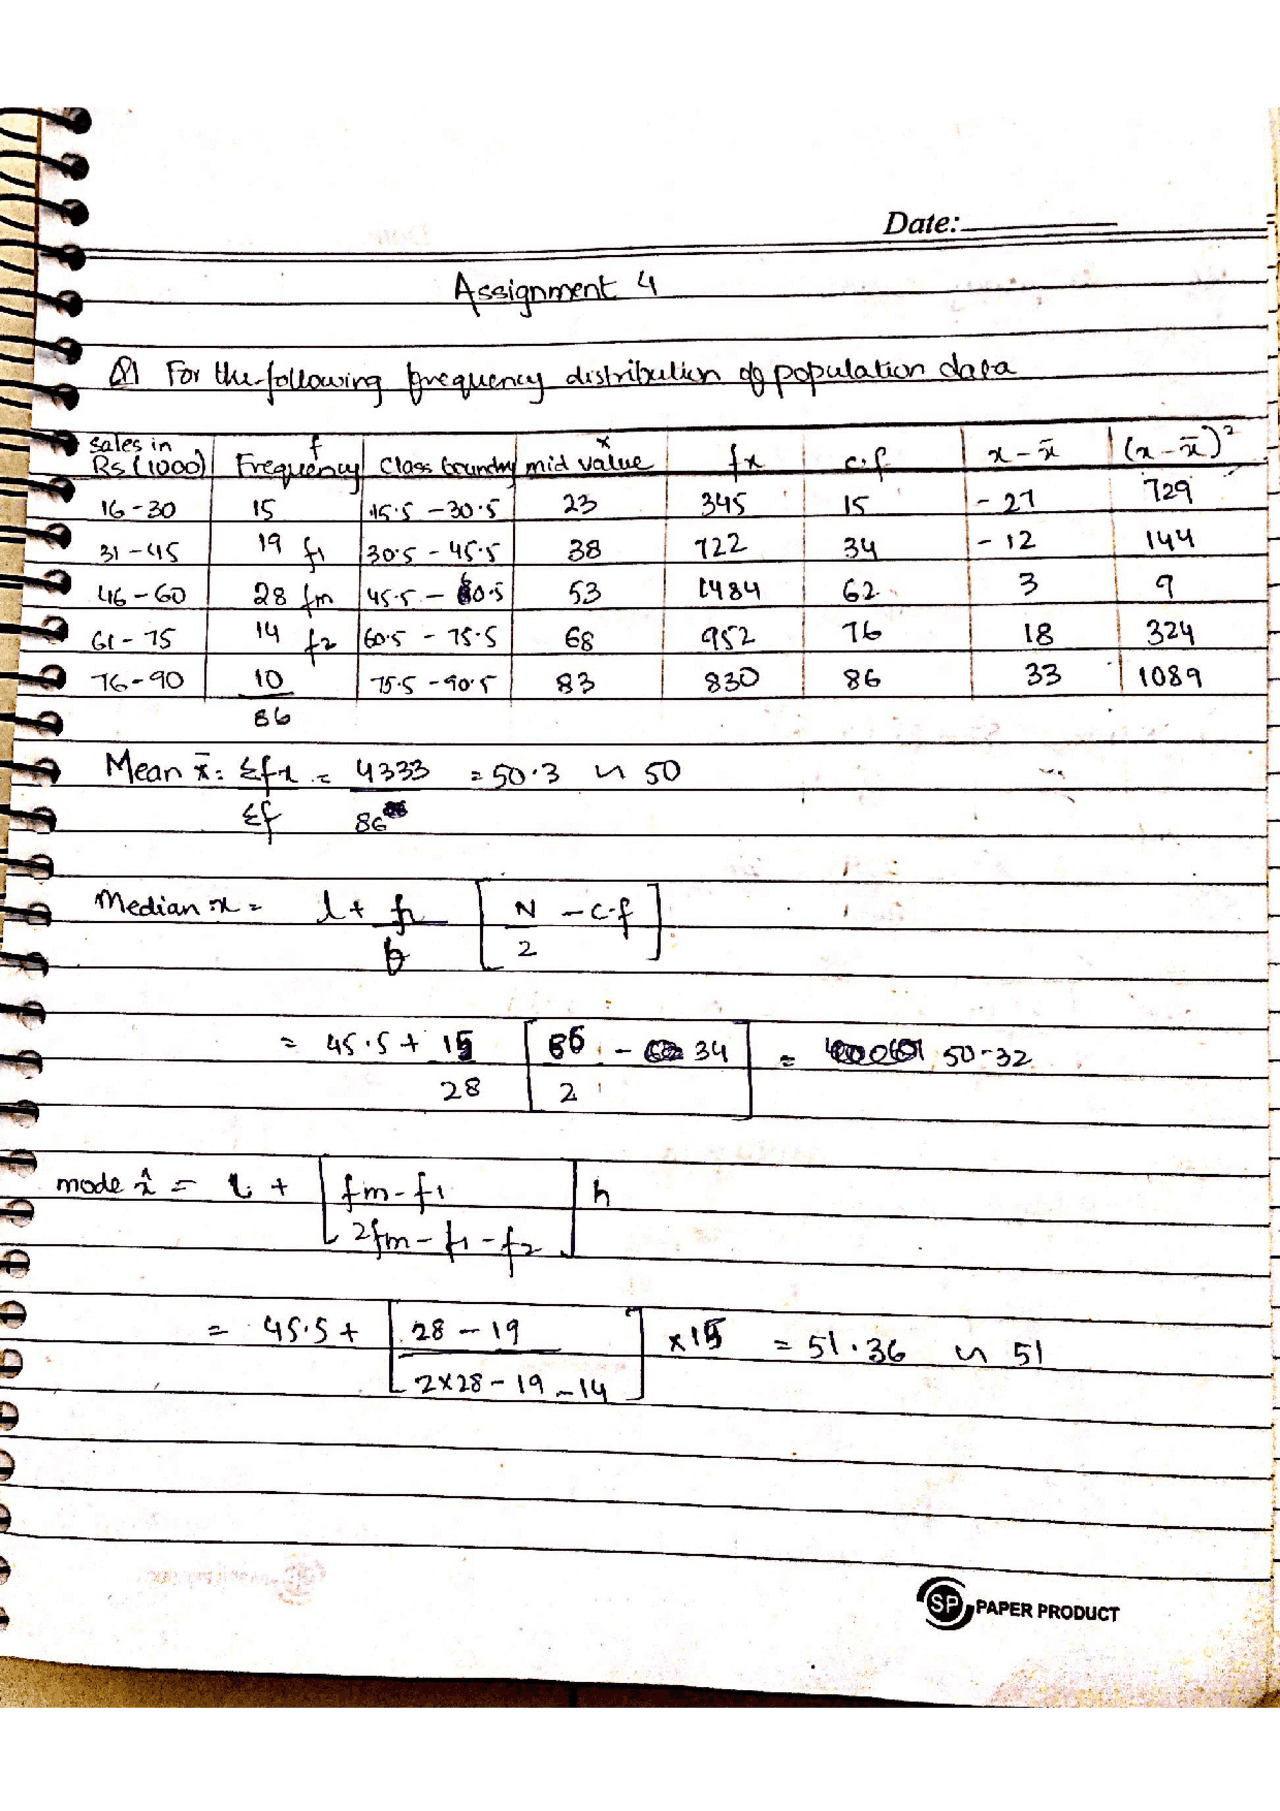 Date:
Assignment 4
Q1 For the following frequency distribution of population data
sales in Rs (1000) | f Frequency | Class boundry | x mid value | fx | c.f | x - x̄ | (x - x̄)²
16-30 | 15 | 15.5 - 30.5 | 23 | 345 | 15 | - 27 | 729
31-45 | 19 f1 | 30.5 - 45.5 | 38 | 722 | 34 | - 12 | 144
46-60 | 28 fm | 45.5 - 60.5 | 53 | 1484 | 62 | 3 | 9
61-75 | 14 f2 | 60.5 - 75.5 | 68 | 952 | 76 | 18 | 324
76-90 | 10 | 75.5 - 90.5 | 83 | 830 | 86 | 33 | 1089
86
Mean x̄ = Σfx / Σf = 4333 / 86 = 50.3 ∽ 50
Median x = l + h / f [ N / 2 - c.f ]
= 45.5 + 15 / 28 [ 86 / 2 - 34 ] = 50.32
mode x̂ = l + [ fm - f1 / 2fm - f1 - f2 ] h
= 45.5 + [ 28 - 19 / 2×28 - 19 - 14 ] ×15 = 51.36 ∽ 51
SP PAPER PRODUCT